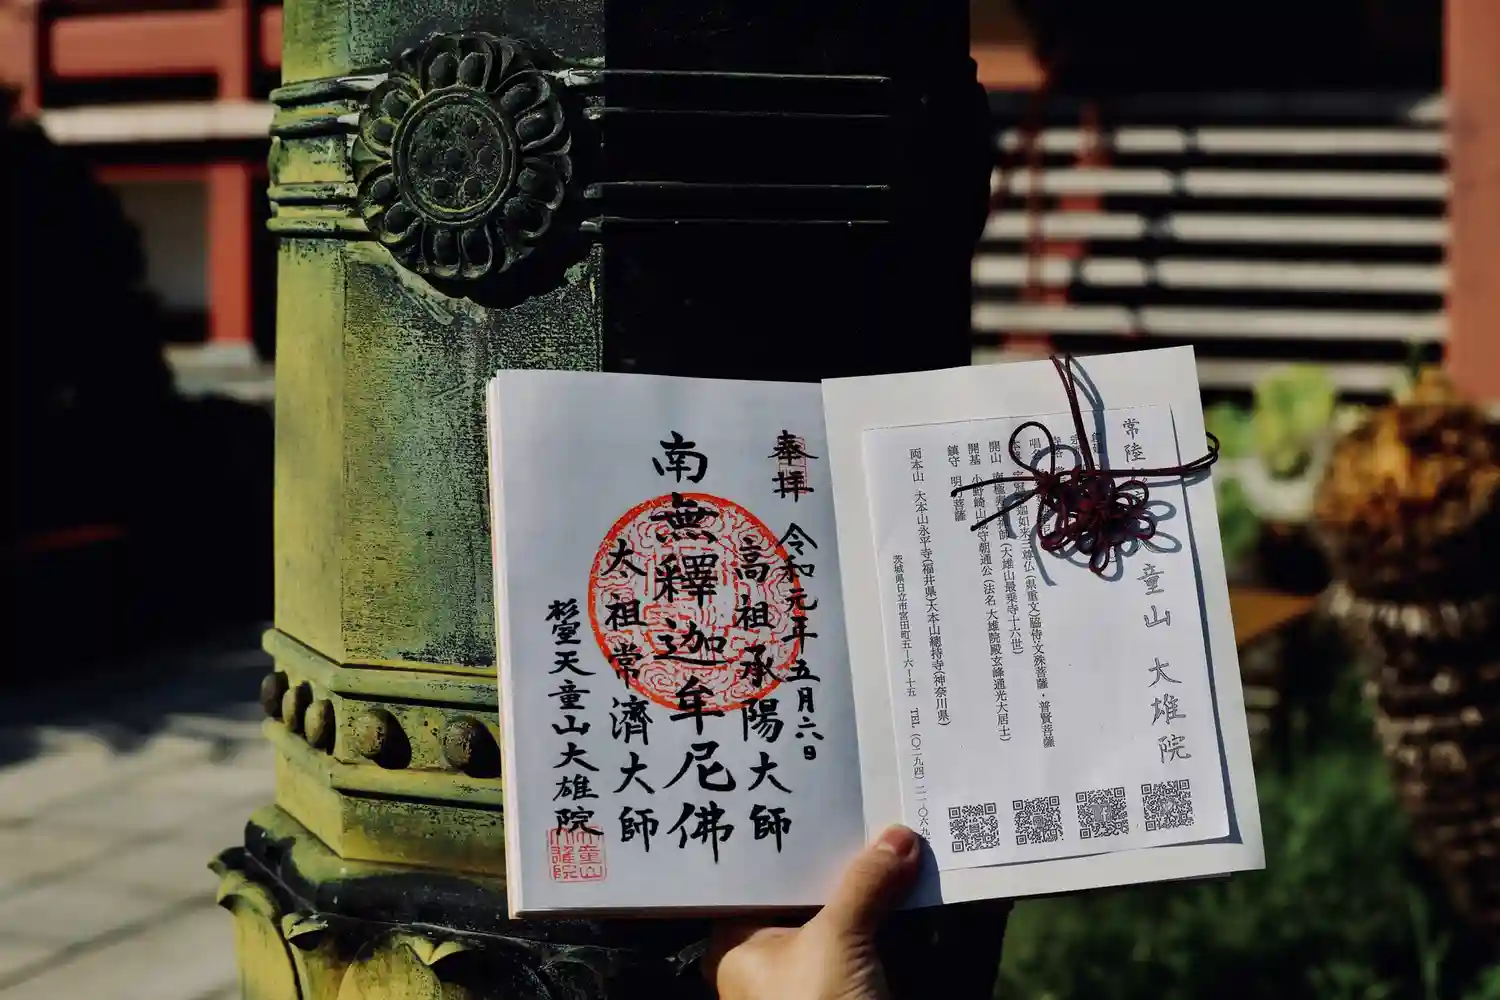 常陸
童山 大雄院
開山 南極
(大雄山最乗寺十六世)
如来三尊仏(県重文)脇侍・文殊菩薩・普賢菩薩
開基 小野崎山
守朝通公(法名 大雄院殿玄峰通光大居士)
鎮守 明
菩薩
両本山 大本山永平寺(福井県)大本山總持寺(神奈川県)
茨城県日立市宮田町五ー六ー十五 TEL(〇二九四)二一ー〇六九
奉拝 令和元年五月六日
高祖承陽大師
南無釋迦牟尼佛
太祖常濟大師
杉室天童山大雄院
天童山
大雄院